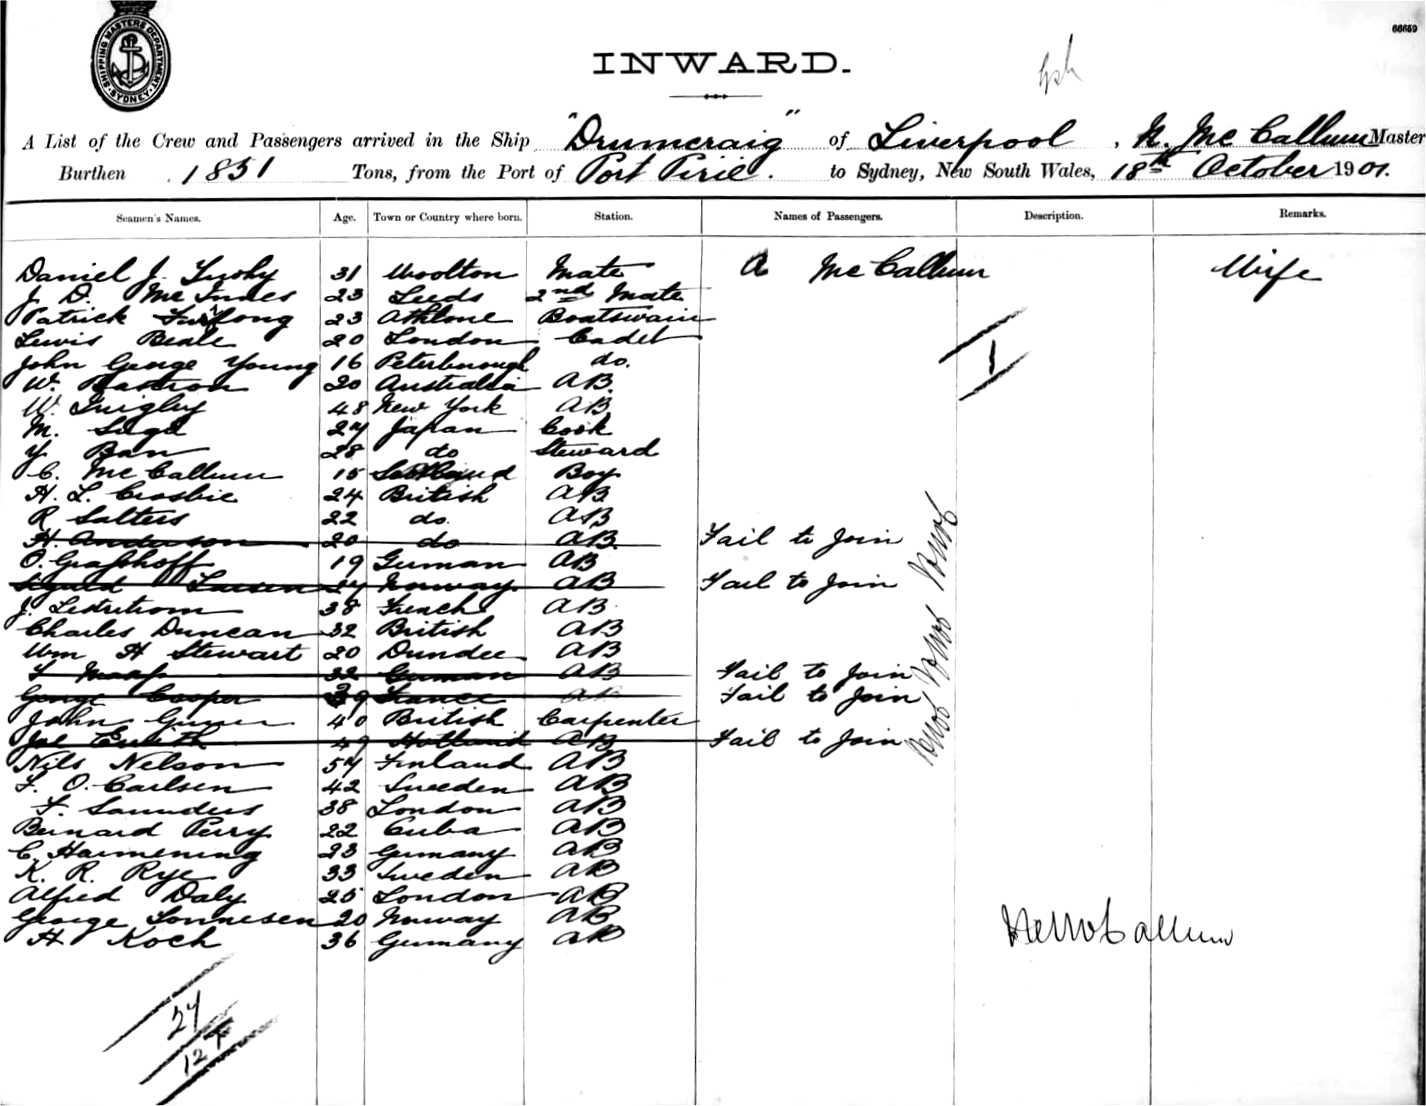 SHIPPING MASTERS DEPARTMENT SYDNEY
66659
INWARD.
A List of the Crew and Passengers arrived in the Ship "Drumcraig" of Liverpool, N. McCallum Master
Burthen 1851 Tons, from the Port of Port Pirie. to Sydney, New South Wales, 18th October 1901.
Seamen's Names. Age. Town or Country where born. Station. Names of Passengers. Description. Remarks.
Daniel J. Tuohy 31 Woolton Mate A McCallum Wife
J. D. McInnes 23 Leeds 2nd Mate
Patrick Furlong 23 Athlone Boatswain
Lewis Beale 20 London Cadet
John George Young 16 Peterborough do.
W. 20 Australia AB.
W. Quigley 48 New York AB
M. 27 Japan Cook
Y Ban 28 do Steward
C. McCallum 15 Scotland Boy
H. L. Crosbie 24 British AB
R Salters 22 do. AB
H. Anderson 20 do AB. Fail to Join
O. Grafhoff 19 German AB
Sigurd Larsen 27 Norway AB Fail to Join
J. 38 French AB
Charles Duncan 32 British AB
Wm H Stewart 20 Dundee AB
32 German AB Fail to Join
George Cooper 39 France AB Fail to Join
John 40 British Carpenter
49 Holland AB Fail to Join
Nils Nelson 57 Finland AB
F. O. Carlsen 42 Sweden AB
F. Saunders 38 London AB
Bernard Perry 22 Cuba AB
C. Harmening 23 Germany AB
K. R. Rye 33 Sweden AB
Alfred Daly 25 London AB
George Sonnesen 20 Norway AB
H Koch 36 Germany AB
1
McCallum
27
12